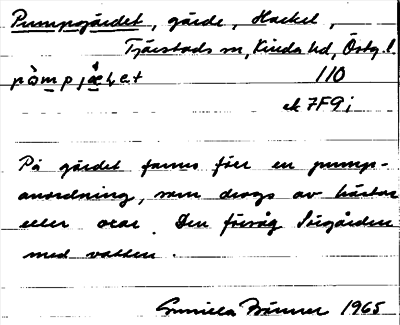 Pumpgärdet, gärde, Hackel,
Tjärstads sn, Kinda hd, Östg.l.
110
ek 7F9i
På gärdet fanns förr en pump-
anordning, som drogs av hästar
eller oxar. Den försåg Storgården
med vatten.
Gunilla Brönner 1965